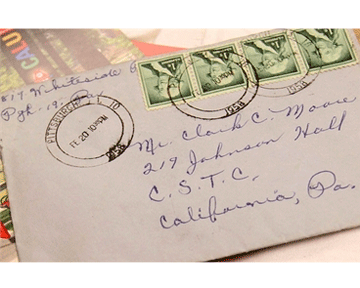 CALU
817 Whiteside
Pgh. 19, Pa.
PITTSBURGH
FE 20 10 PM
1956
Mr. Clark C. Moore
219 Johnson Hall
C. S. T. C.
California, Pa.